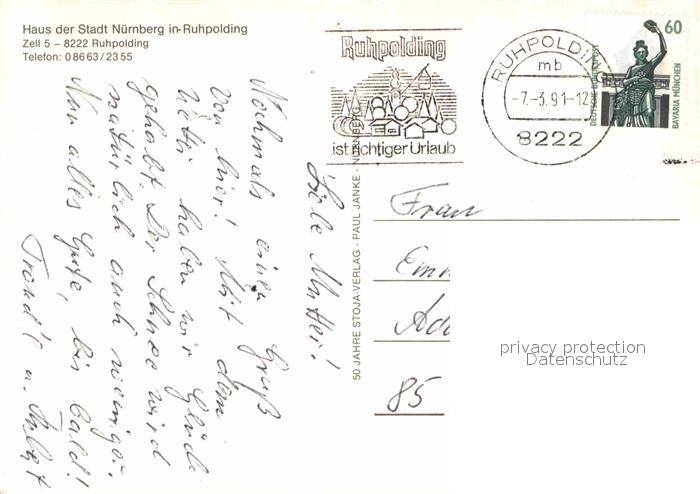 Haus der Stadt Nürnberg in Ruhpolding
Zell 5 - 8222 Ruhpolding
Telefon: 08663/2355
Ruhpolding
ist richtiger Urlaub
RUHPOLDING
mb
-7.-3.91-12
8222
60
DEUTSCHE BUNDESPOST
BAVARIA MÜNCHEN
50 JAHRE STOJA-VERLAG - PAUL JANKE - NÜRNBERG
Liebe Mutter!
Nochmals einen Gruß
von hier! Mit dem
Wetter haben wir Glück
gehabt. Der Schnee wird
natürlich auch weniger.
Nun alles Gute, bis bald!
Traud'l u.
Frau
Em
Ad
85
privacy protection
Datenschutz